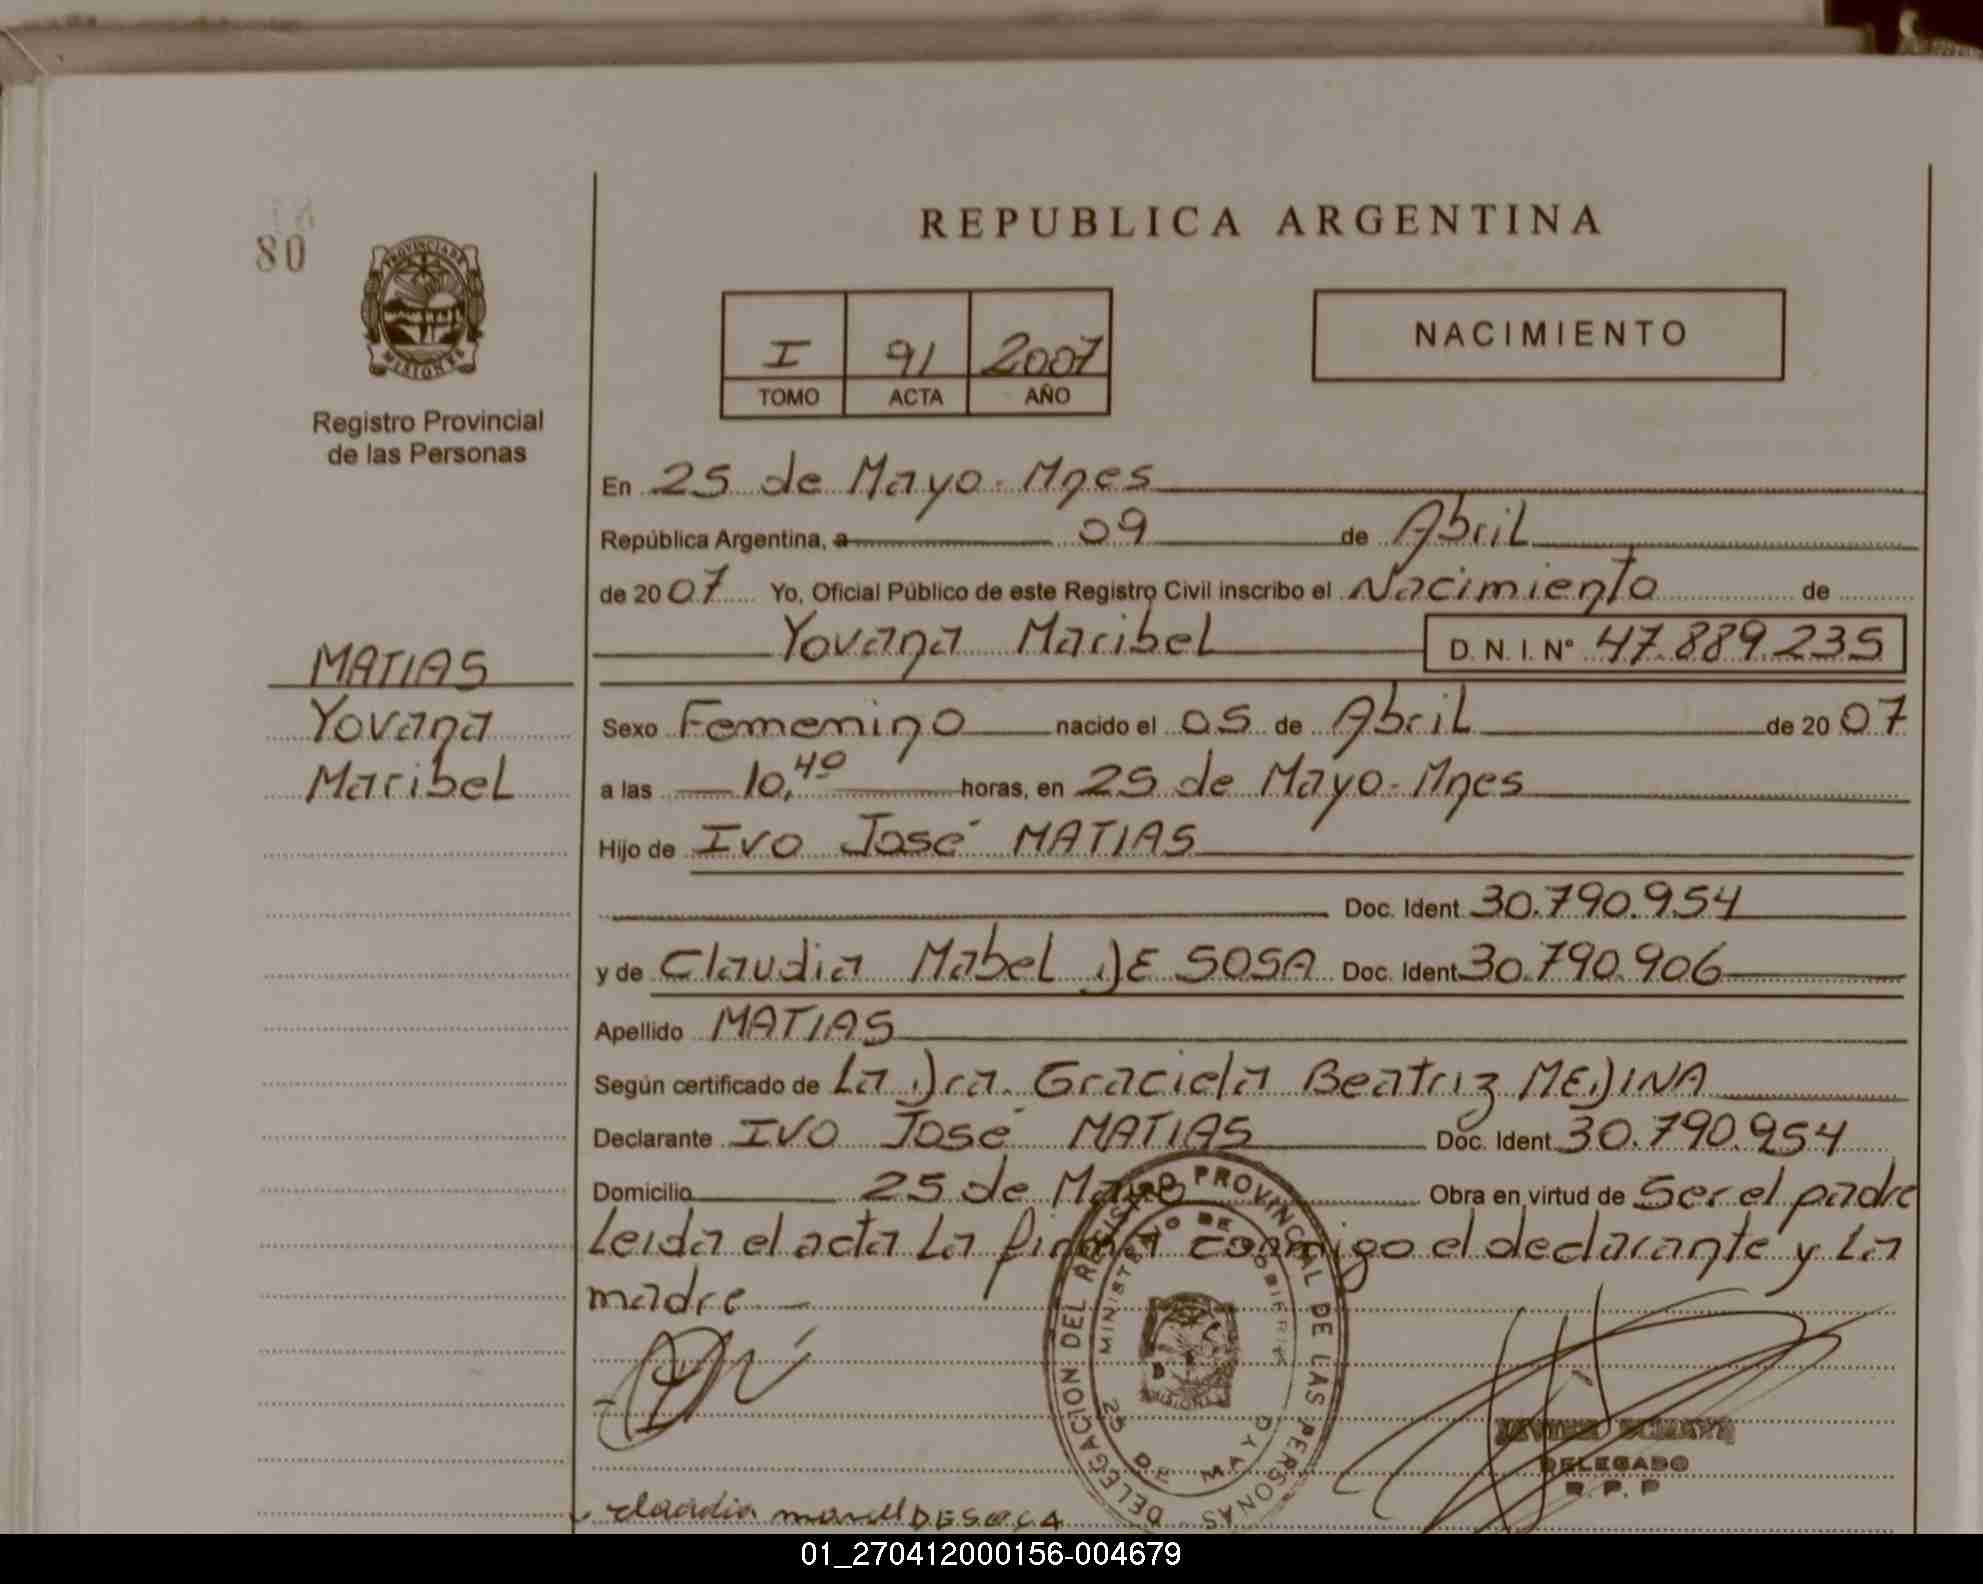 80
PROVINCIA DE
MISIONES
Registro Provincial
de las Personas
MATIAS
Yovana
Maribel
REPUBLICA ARGENTINA
I 91 2007
TOMO ACTA AÑO
NACIMIENTO
En 25 de Mayo - Mnes
República Argentina, a 09 de Abril
de 2007 Yo, Oficial Público de este Registro Civil inscribo el Nacimiento de
Yovana Maribel D. N. I. N° 47.889.235
Sexo Femenino nacido el 05 de Abril de 2007
a las 10,40 horas, en 25 de Mayo - Mnes
Hijo de Ivo José MATIAS
Doc. Ident 30.790.954
y de Claudia Mabel DE SOSA Doc. Ident 30.790.906
Apellido MATIAS
Según certificado de La Dra. Graciela Beatriz MEDINA
Declarante IVO José MATIAS Doc. Ident 30.790.954
Domicilio 25 de Mayo Obra en virtud de Ser el padre
Leida el acta La firma conmigo el declarante y La
madre
DELEGACION DEL REGISTRO PROVINCIAL DE LAS PERSONAS
MINISTERIO DE GOBIERNO
25 DE MAYO
MISIONES
DELEGADO
R. P. P
claudia DESOSA
01_270412000156-004679